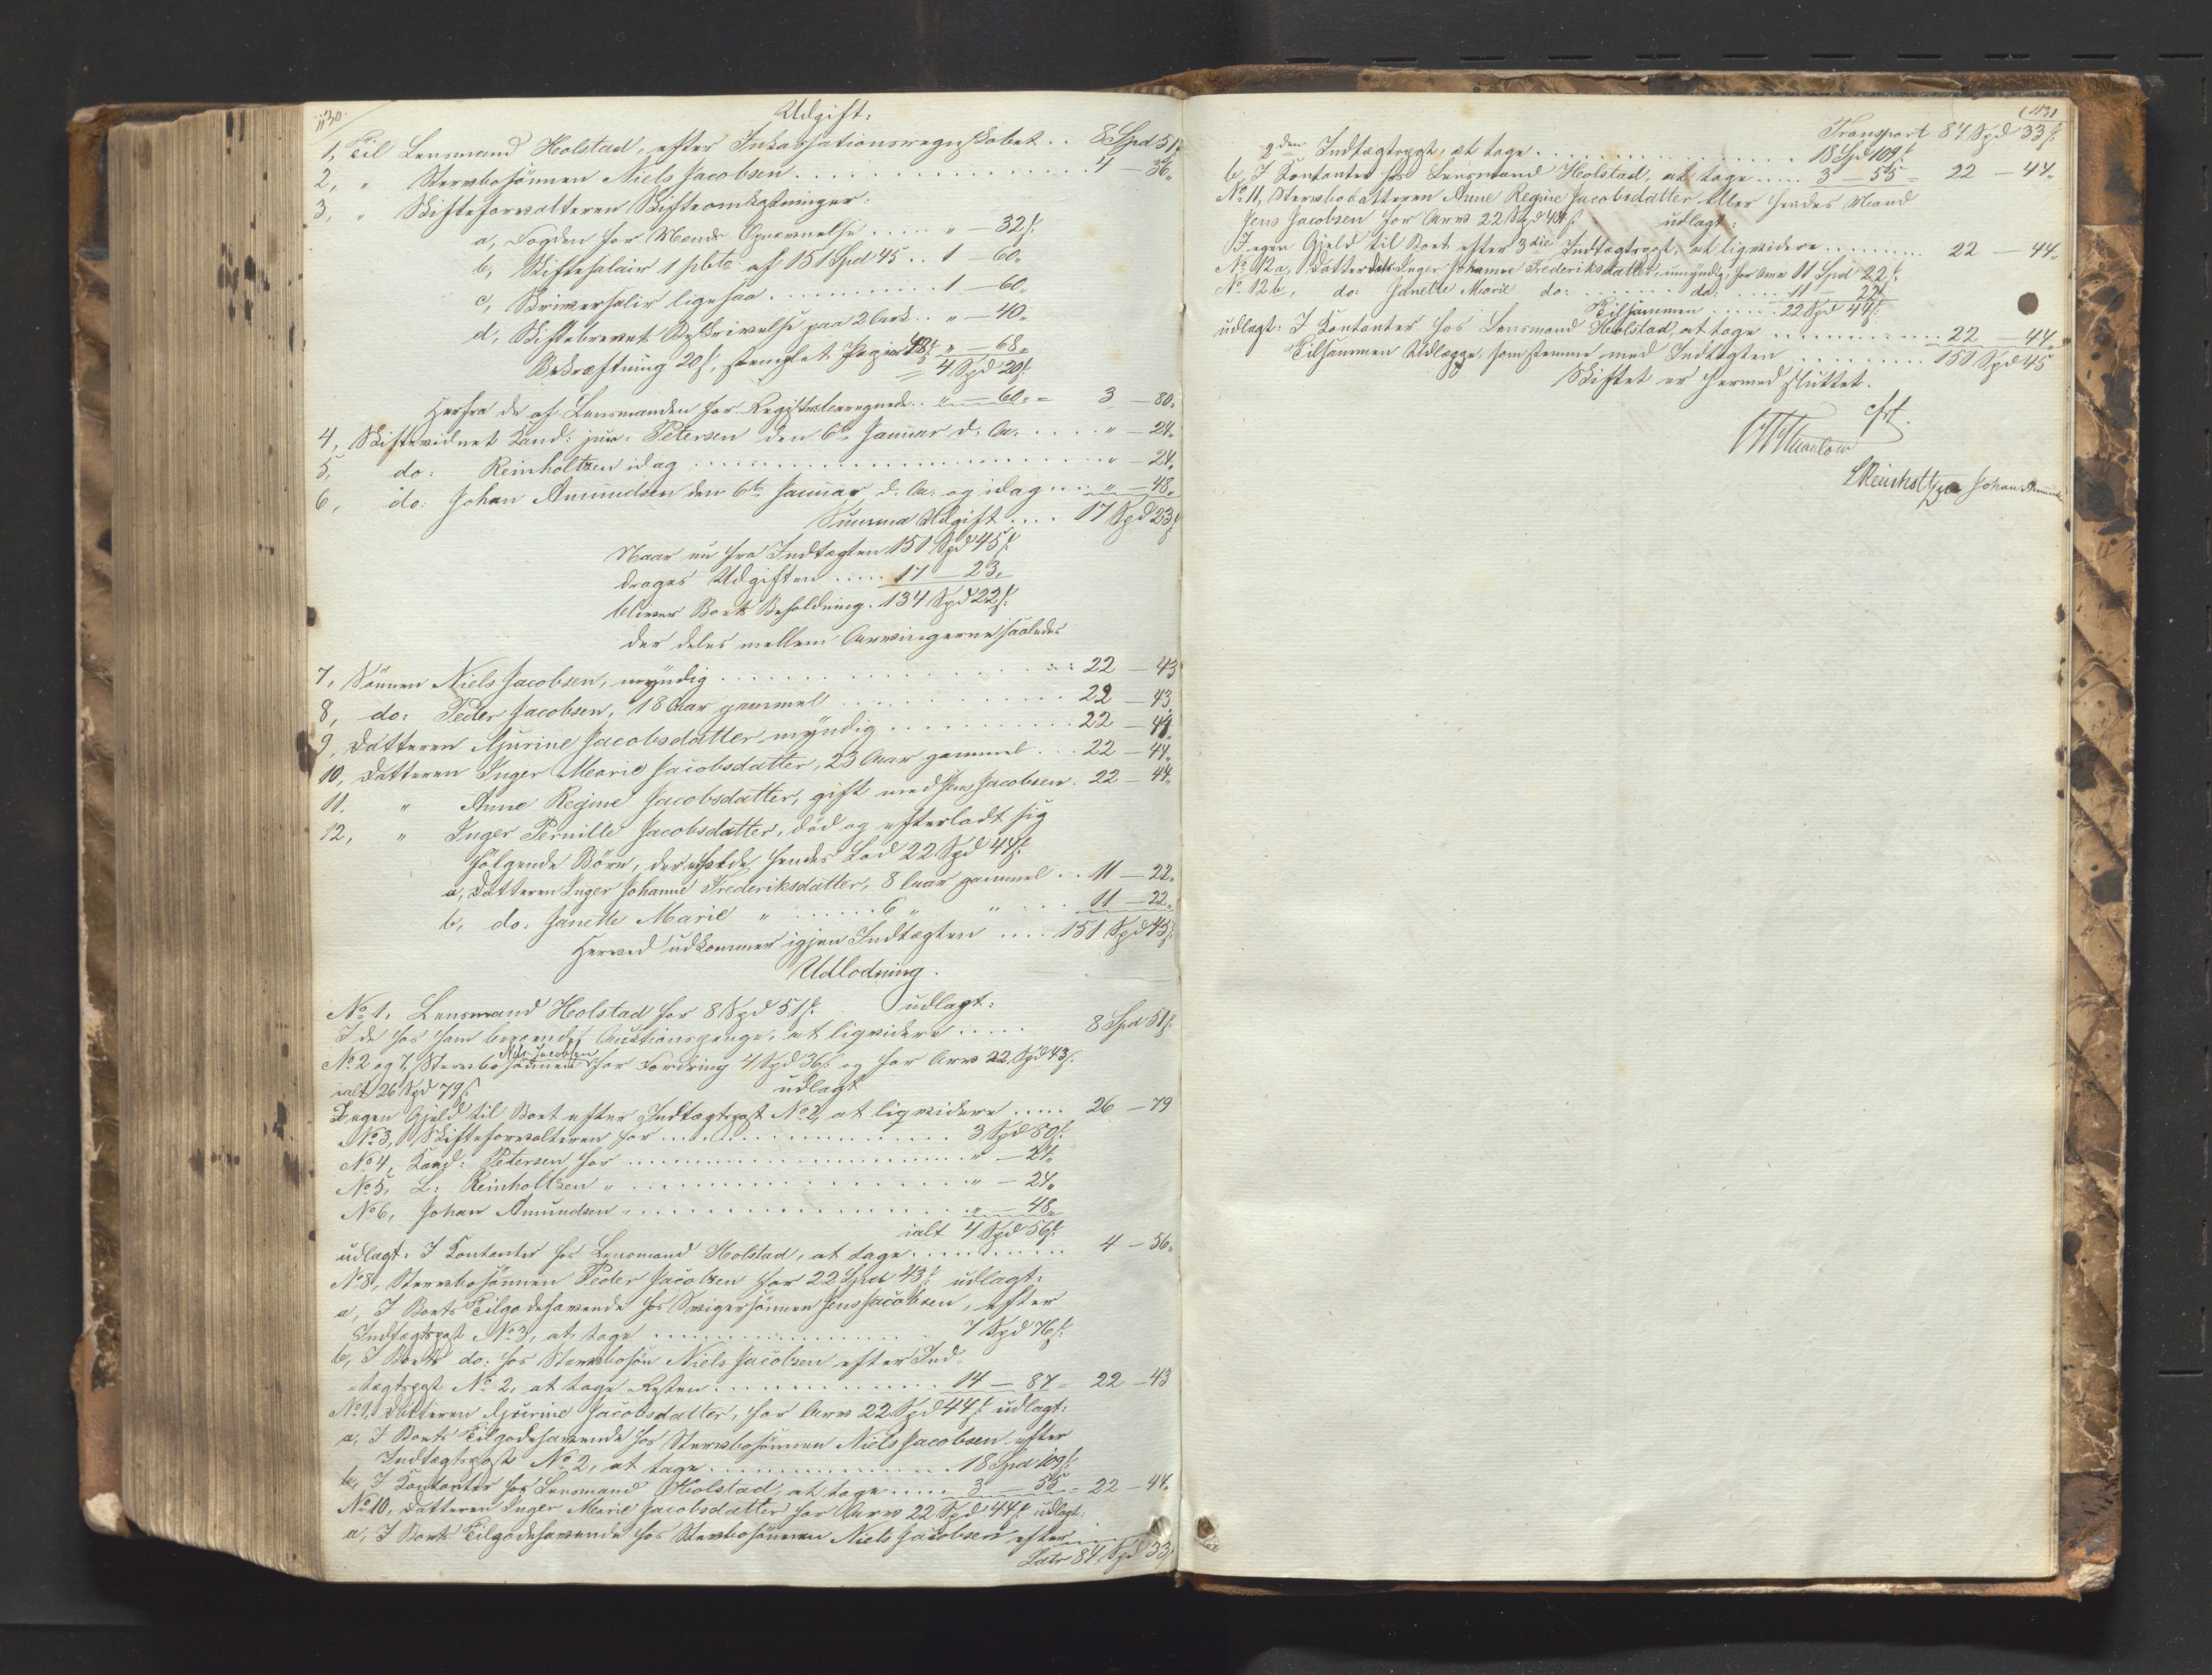 430.
Udgift:
1, Til Lensmand Holstad, efter Inkassationsregnskabet . . 8 Spd 51 s
2, " Stervbosönnen Niels Jacobsen . . . . 4 — 36 "
3, " Skifteforvalteren Skifteomkostninger:
a, Fogden for Mænds Opnævnelse . . . . " — 32 s.
b, Skiftesalair 1 pCto af 151 Spd 45 . . 1 — 60 "
c, Skriversalair ligesaa . . . . 1 — 60 "
d, Skiftebrevet Beskrivelse paa 2 Ark . . " — 40 "
Bekræftning 20 s, stemplet Papir 48 s " — 68 "
= 4 Spd 20 s.
Herfra de af Lensmanden for Registr. beregnede . . " — 60 " = 3 — 80 "
4, Skiftevidnet Cand: jur: Petersen den 6te Januar d. A. . . . . " — 24 "
5, do: Reinholtzen idag . . . . " — 24 "
6, do: Johan Amundsen den 6te Januar d. A. og idag . . . " — 48 "
Summa Udgift . . . . 17 Spd 23 s
Naar nu fra Indtægten 151 Spd 45 s.
drages Udgiften . . . . . 17 — 23 "
bliver Boets Beholdning . 134 Spd 22 s.
der deles mellem Arvingerne saaledes
7, Sönnen Niels Jacobsen, myndig . . . . 22 — 43
8, do: Peder Jacobsen, 18 Aar gammel . . . . 22 — 43
9, Datteren Gjurine Jacobsdatter myndig . . . . 22 — 44 "
10, Datteren Inger Marie Jacobsdatter, 23 Aar gammel . . . 22 — 44 "
11, " Anne Regine Jacobsdatter, gift med Jens Jacobsen . 22 — 44 "
12, " Inger Pernille Jacobsdatter, död og efterladt sig
fölgende Börn, der erholde hendes Lod 22 Spd 44 s.
a, Datteren Inger Johanne Frederiksdatter, 8 Aar gammel . . 11 — 22 "
b, do: Janette Marie " . . . . . . 6 " " . . . 11 — 22 "
Herved udkommer igjen Indtægten . . . . 151 Spd 45 s.
Udlodning.
No 1, Lensmand Holstad for 8 Spd 51 s. udlagt:
I de hos ham beroende Auktionspenge, at liqvidere . . . . . 8 Spd 51 s.
No 2 og 7, Stervbosönnen Niels Jacobsen for Fordring 4 Spd 36 s. og for Arv 22 Spd 43 s.
ialt 26 Spd 79 s. udlagt
I egen Gjeld til Boet efter Indtægtspost No 2, at liqvidere . . . . . 26 — 79
No 3, Skifteforvalteren for . . . . 3 Spd 80 s.
No 4, Cand: Petersen for . . . . " — 24 "
No 5, L: Reinholtzen " . . . . " — 24 "
No 6, Johan Amundsen " . . . . " — 48 "
ialt 4 Spd 56 s.
udlagt: I Kontanter hos Lensmand Holstad, at tage . . . . 4 — 56 "
No 8, Stervbosönnen Peder Jacobsen for 22 Spd 43 s. udlagt:
a, I Boets Tilgodehavende hos Svigersönnen Jens Jacobsen, efter
Indtægtspost No 3, at tage . . . . 7 Spd 76 s.
b, I Boets do: hos Stervbosön Niels Jacobsen efter Ind-
-tægtspost No 2, at tage Resten . . . . 14 — 87 = 22 — 43
No 9, Datteren Gjurine Jacobsdatter, for Arv 22 Spd 44 s. udlagt:
a, I Boets Tilgodehavende hos Stervbosönnen Niels Jacobsen efter
Indtægtspost No 2, at tage . . . . 18 Spd 109 s.
b, I Kontanter hos Lensmand Holstad, at tage . . . . . 3 — 55 = 22 — 44 "
No 10, Datteren Inger Marie Jacobsdatter for Arv 22 Spd 44 s. udlagt:
a, I Boets Tilgodehavende hos Stervbosönnen Niels Jacobsen efter
Latr 84 Spd 33 s
431
Transport 84 Spd 33 s.
2den Indtægtspost, at tage . . . . 18 Spd 109 s.
b, I Kontanter hos Lensmand Holstad, at tage . . . . . 3 — 55 = 22 — 44 "
No 11, Stervbodatteren Anne Regine Jacobsdatter eller hendes Mand
Jens Jacobsen for Arv 22 Spd 44 s. udlagt:
I egen Gjeld til Boet efter 3die Indtægtspost, at liqvidere . . . . 22 — 44 "
No 12 a, Datterdatter Inger Johanne Frederiksdatter, umyndig, for Arv 11 Spd 22 s.
No 12 b, do: Janette Marie do: . . . . do: . . . 11 — 22 s
Tilsammen . . . . . 22 Spd 44 s.
udlagt: I Kontanter hos Lensmand Holstad, at tage . . . . 22 — 44 "
Tilsammen Udlægge, som stemme med Indtægten . . . . 151 Spd 45
Skiftet er hermed sluttet.
L Reinholtzen Johan Amunds